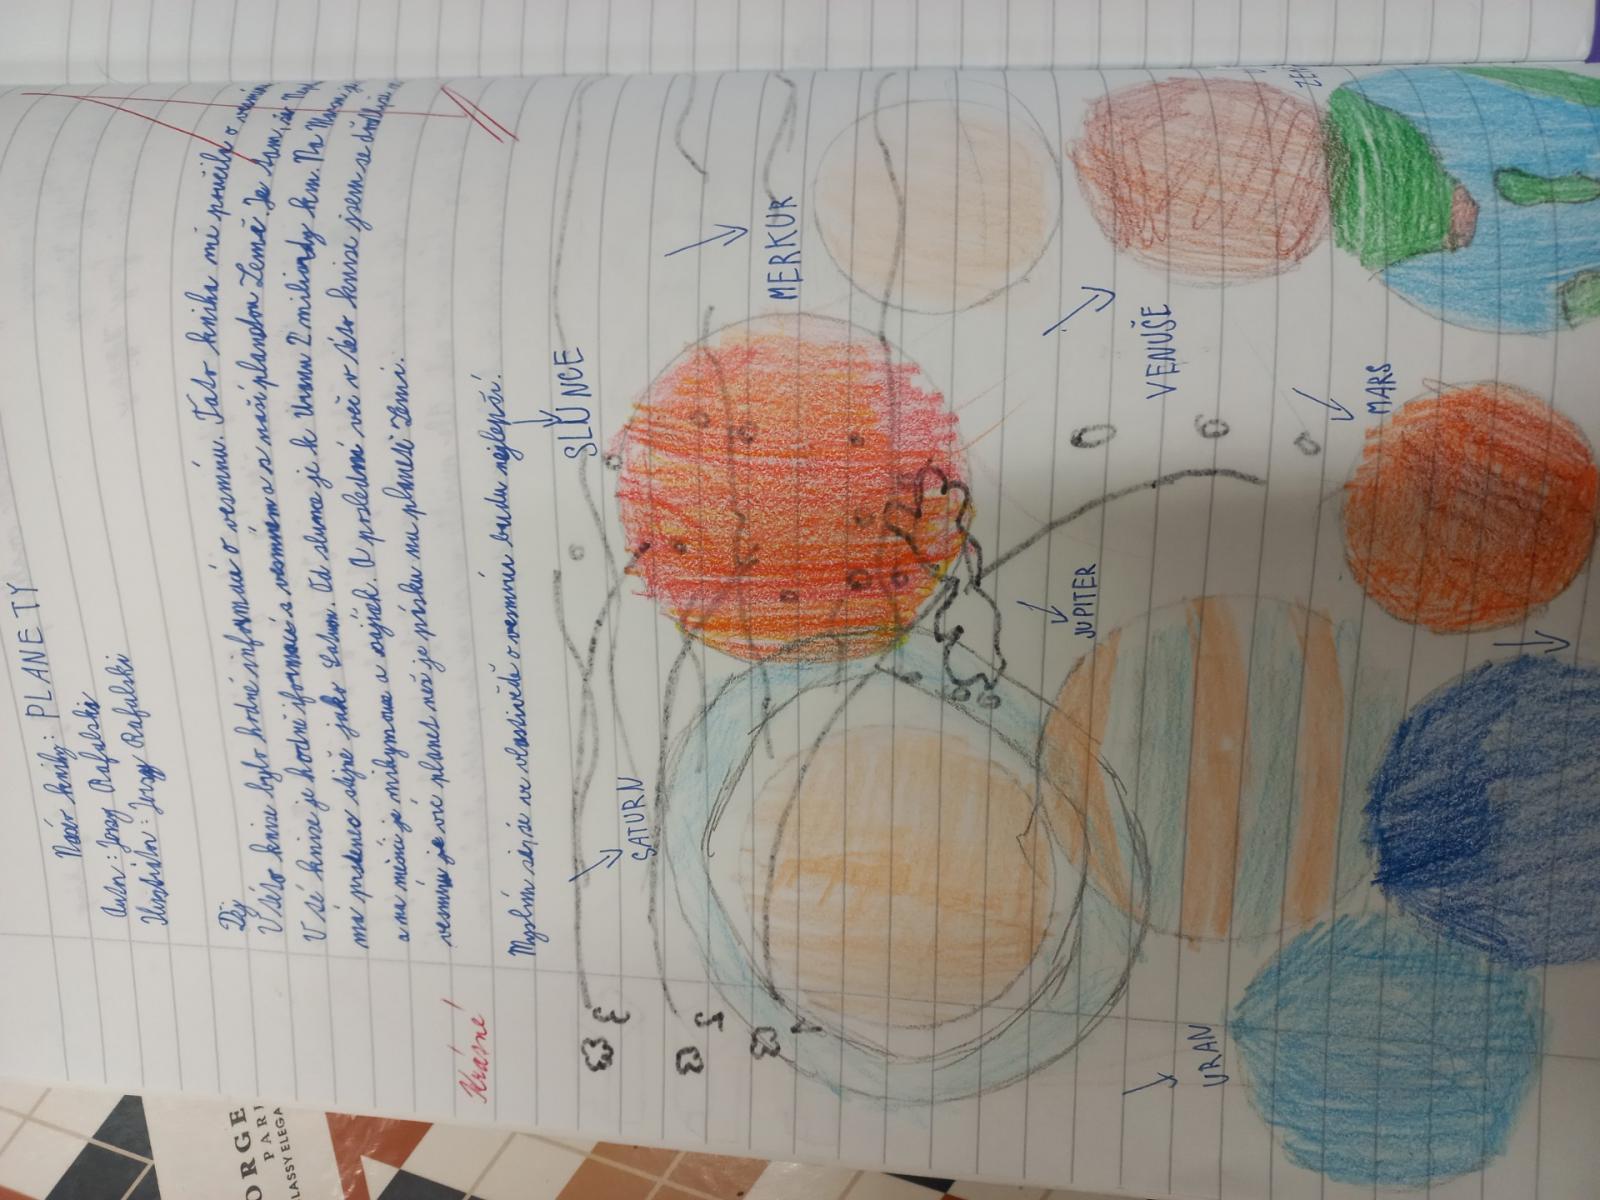 Název knihy: PLANETY
Autor: Jerzy Rafalski
Ilustrátor: Jerzy Rafalski
Děj
V této knize bylo hodně informací o vesmíru. Tato kniha mě poučila o
V té knize je hodně informací s a naší planetou Země. Je tam, že
má prstenec stejně jako Saturn. Od slunce je k Uranu 2 miliardy km. Na
a na měsíci je A poslední věc v této knize jsem se
vesmíru je víc planet než je písku na planetě Zemi.
Myslím si, že ve vlastivědě o vesmíru budu nejlepší.
Krásné!
SLUNCE
MERKUR
VENUŠE
MARS
JUPITER
SATURN
URAN
ORGE
PARI
LASSY ELEGA